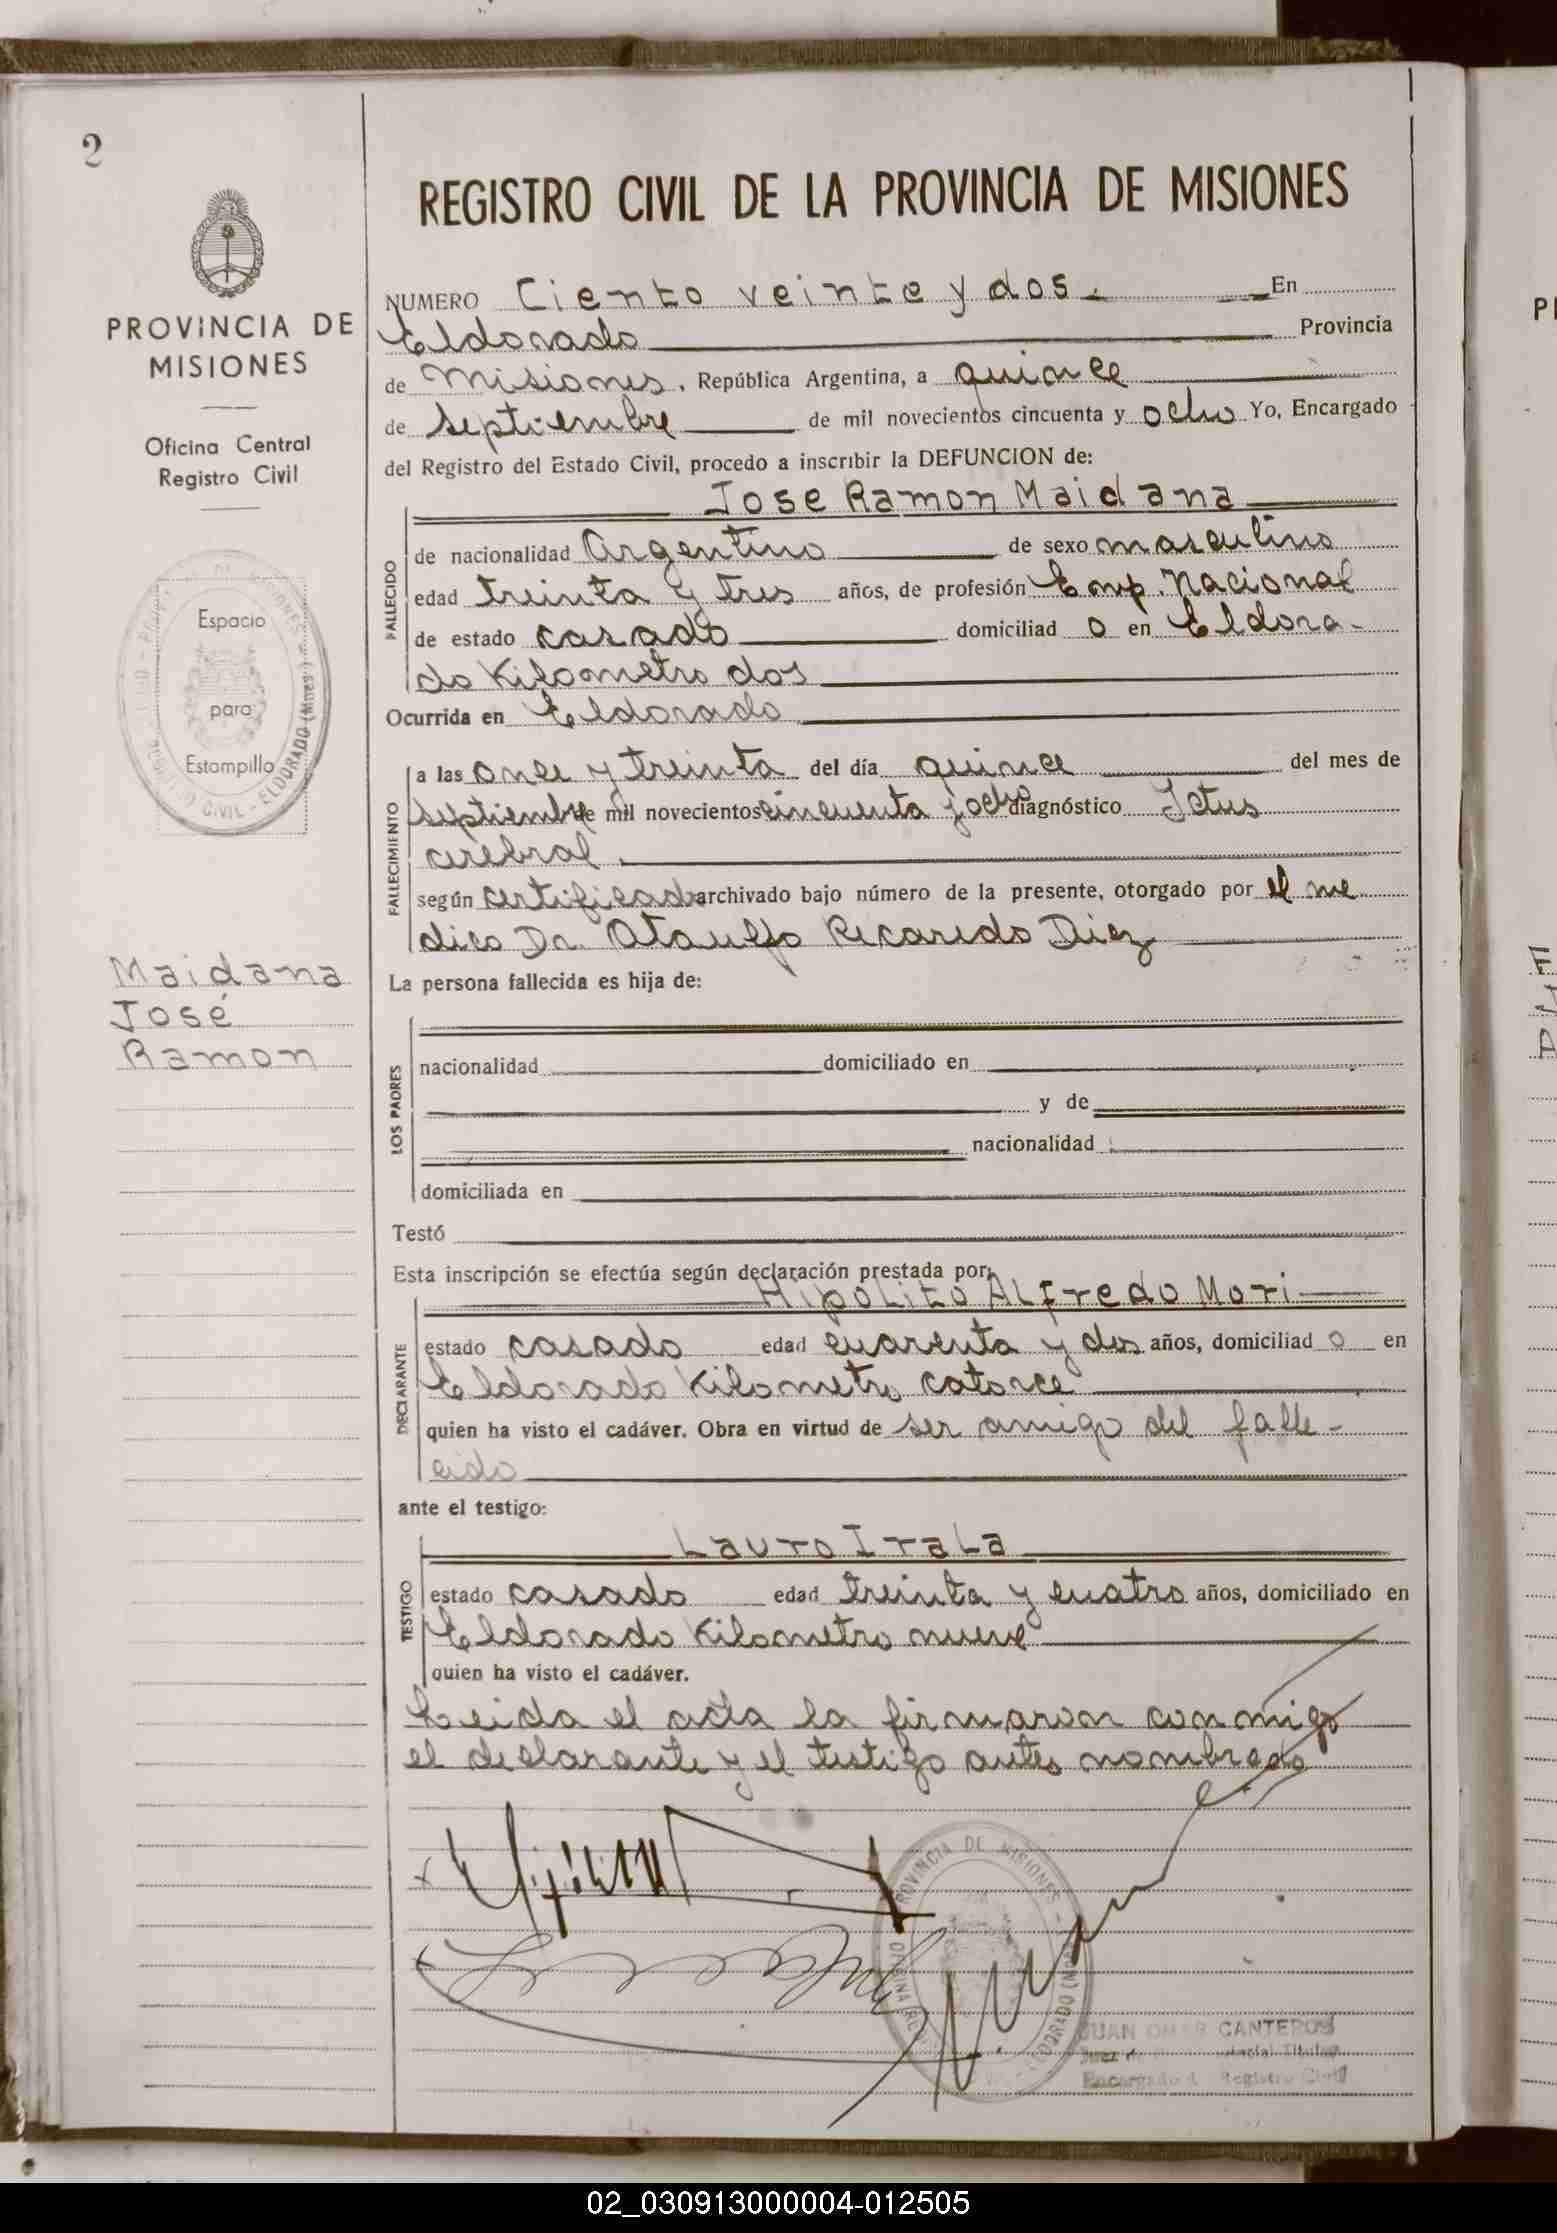 2
PROVINCIA DE
MISIONES
Oficina Central
Registro Civil
Espacio
para
Estampilla
CIVIL - ELDORADO (Mnes.)
Maidana
José
Ramon
REGISTRO CIVIL DE LA PROVINCIA DE MISIONES
NUMERO Ciento veinte y dos. En
Eldorado Provincia
de Misiones, República Argentina, a quince
de septiembre de mil novecientos cincuenta y ocho Yo, Encargado
del Registro del Estado Civil, procedo a inscribir la DEFUNCION de:
Jose Ramon Maidana
FALLECIDO
de nacionalidad Argentino de sexo masculino
edad treinta y tres años, de profesión Emp. Nacional
de estado casado domiciliad o en Eldora-
do Kilometro dos
Ocurrida en Eldorado
FALLECIMIENTO
a las once y treinta del día quince del mes de
septiembre de mil novecientos cincuenta y ocho diagnóstico Ictus
cerebral.
según certificado archivado bajo número de la presente, otorgado por el me
dico Dr. Ataulfo Recaredo Diez
La persona fallecida es hija de:
LOS PADRES
nacionalidad domiciliado en
y de
nacionalidad
domiciliada en
Testó
Esta inscripción se efectúa según declaración prestada por:
Hipolito Alfredo Mori
DECLARANTE
estado casado edad cuarenta y dos años, domiciliad o en
Eldorado Kilometro catorce
quien ha visto el cadáver. Obra en virtud de ser amigo del falle-
cido
ante el testigo:
Lauro Irala
TESTIGO
estado casado edad treinta y cuatro años, domiciliado en
Eldorado Kilometro nueve
quien ha visto el cadáver.
Leida el acta la firmaron conmigo
el declarante y el testigo antes nombrado
PROVINCIA DE MISIONES
ELDORADO
JUAN OMAR CANTEROS
Encargado Registro Civil
02_030913000004-012505